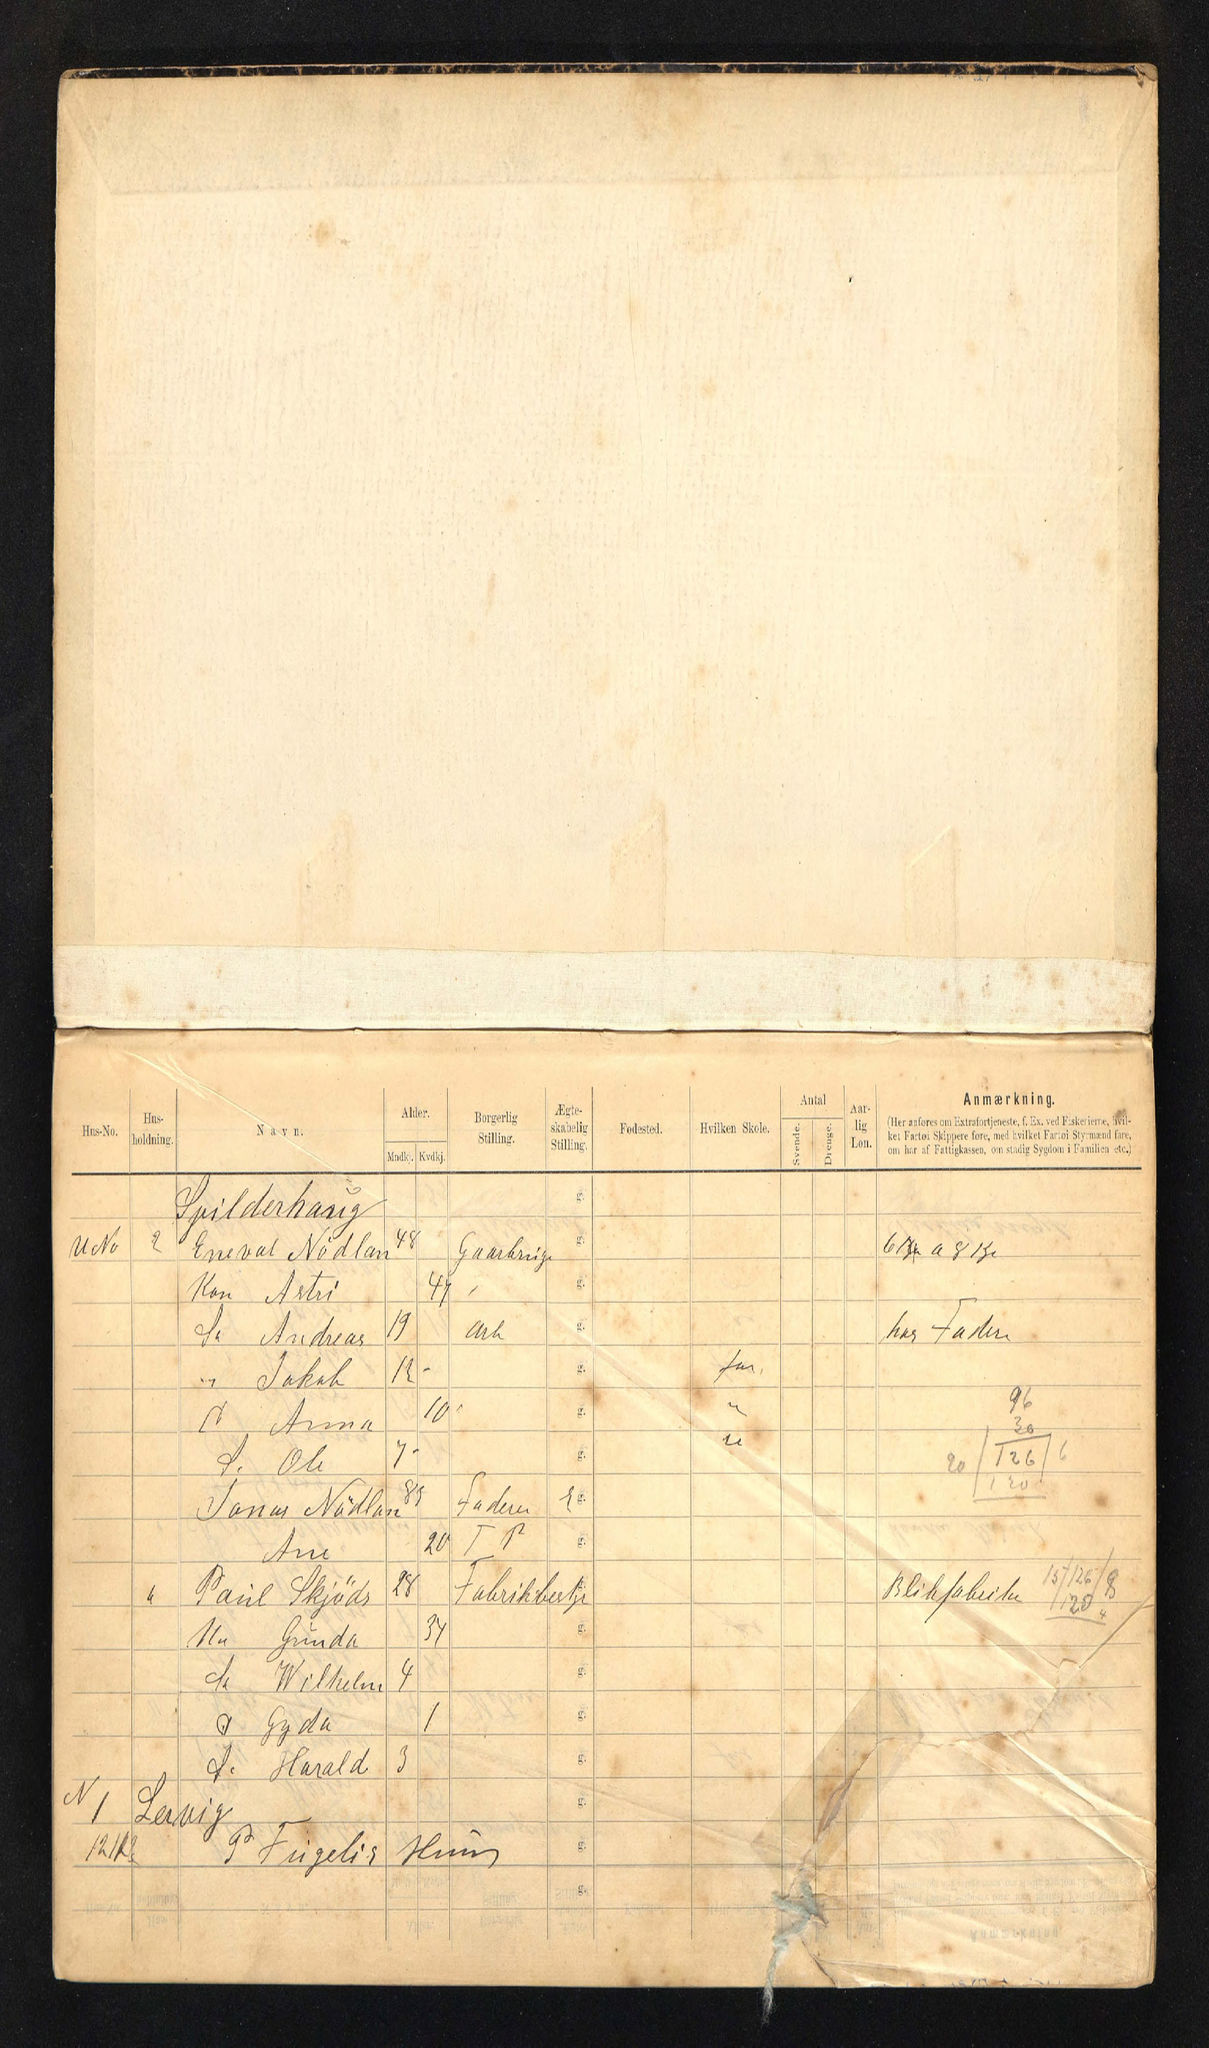 Hus-No. Hus-holdning. Navn. Alder. Mndkj. Kvdkj. Borgerlig Stilling. Ægte-skabelig Stilling. Fødested. Hvilken Skole. Antal Svende. Drenge. Aar-lig Løn. Anmærkning.
(Her anføres om Extrafortjeneste, f. Ex. ved Fiskerierne, hvil-
ket Fartøi Skippere føre, med hvilket Fartøi Styrmænd fare,
om har af Fattigkassen, om stadig Sygdom i Familien etc.)
Spilderhaug g.
UNo 2 Eneval Nödlan 48 Gaarbrug g. 6 a 8
Kon Astri 47 g.
Sø Andreas 19 Arb g. hos Fadern
" Jakob 12 - g.
D Anna 10 g. " 96
S. Ole 7 - g. " 30
20 / 126 / 6
120
Jonas Nödlan 85 Faderen E g.
Ane 20 T P g.
" Paul Skjöds 28 Fabrikbestyr g. Blikfabrike 15/126/8
120 4
Gunda 34 g.
Sø Wilhelm 4 g.
D Gyda 1 g.
S. Harald 3 g.
N 1 Lervig g.
P Fugelis Huus g.
g.